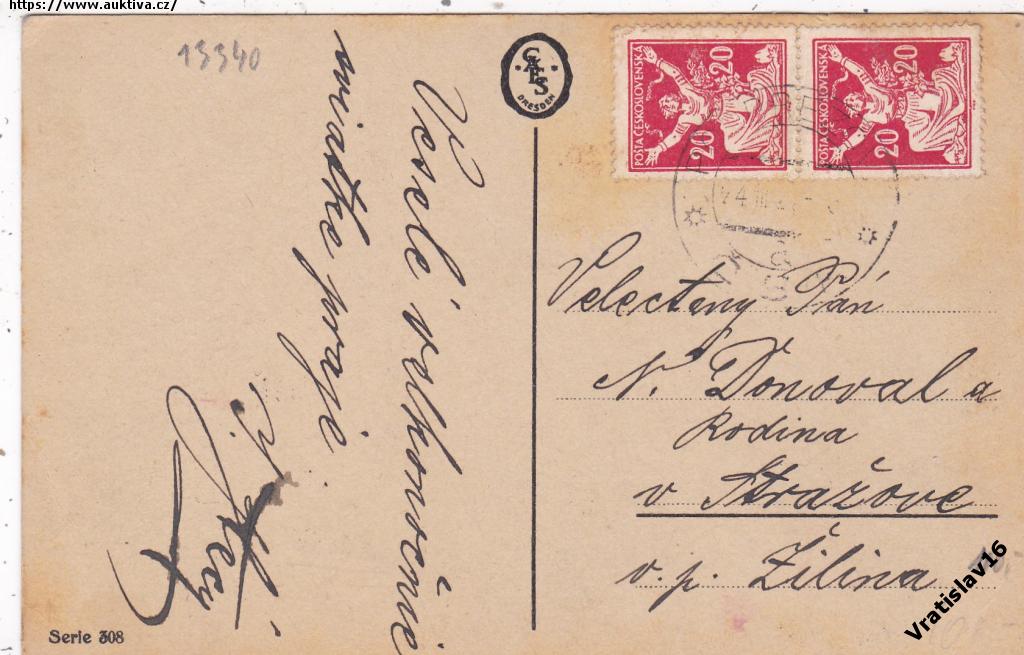 https://www.auktiva.cz/
13340
Veselé veľkonočnie
sviatke praje
CAES
DRESDEN
POŠTA ČESKOSLOVENSKÁ
20
20
POŠTA ČESKOSLOVENSKÁ
20
20
Velectený Pán
N. Donoval a
Rodina
v Stražove
v. p. Žilina
Serie 308
Vratislav16